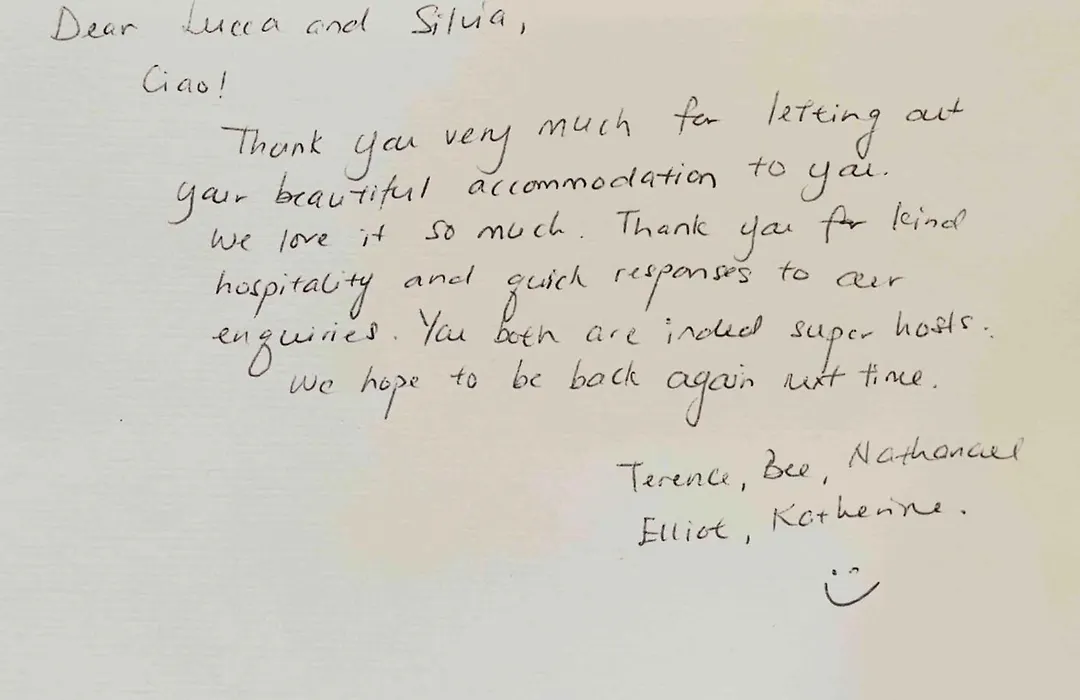 Dear Lucca and Silvia,
Ciao!
Thank you very much for letting out
your beautiful accommodation to you.
We love it so much. Thank you for kind
hospitality and quick responses to our
enquiries. You both are indeed super hosts.
We hope to be back again next time.
Terence, Bee, Nathanael
Elliot, Katherine.